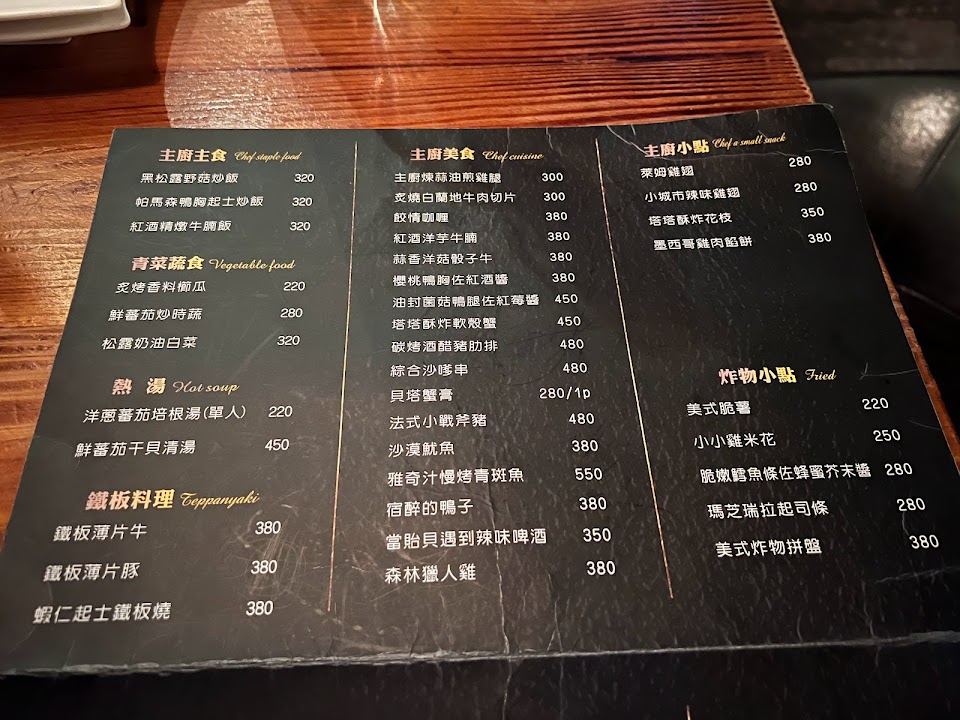 主廚主食 Chef staple food
黑松露野菇炒飯 320
帕馬森鴨胸起士炒飯 320
紅酒精燉牛腩飯 320
青菜蔬食 Vegetable food
炙烤香料櫛瓜 220
鮮蕃茄炒時蔬 280
松露奶油白菜 320
熱湯 Hot soup
洋蔥蕃茄培根湯(單人) 220
鮮蕃茄干貝清湯 450
鐵板料理 Teppanyaki
鐵板薄片牛 380
鐵板薄片豚 380
蝦仁起士鐵板燒 380
主廚美食 Chef cuisine
主廚煉蒜油煎雞腿 300
炙燒白蘭地牛肉切片 300
餃情咖喱 380
紅酒洋芋牛腩 380
蒜香洋菇骰子牛 380
櫻桃鴨胸佐紅酒醬 380
油封菌菇鴨腿佐紅莓醬 450
塔塔酥炸軟殼蟹 450
碳烤酒醋豬肋排 480
綜合沙嗲串 480
貝塔蟹膏 280/1p
法式小戰斧豬 480
沙漠魷魚 380
雅奇汁慢烤青斑魚 550
宿醉的鴨子 380
當貽貝遇到辣味啤酒 350
森林獵人雞 380
主廚小點 Chef a small snack
萊姆雞翅 280
小城市辣味雞翅 280
塔塔酥炸花枝 350
墨西哥雞肉餡餅 380
炸物小點 Fried
美式脆薯 220
小小雞米花 250
脆嫩鱈魚條佐蜂蜜芥末醬 280
瑪芝瑞拉起司條 280
美式炸物拼盤 380